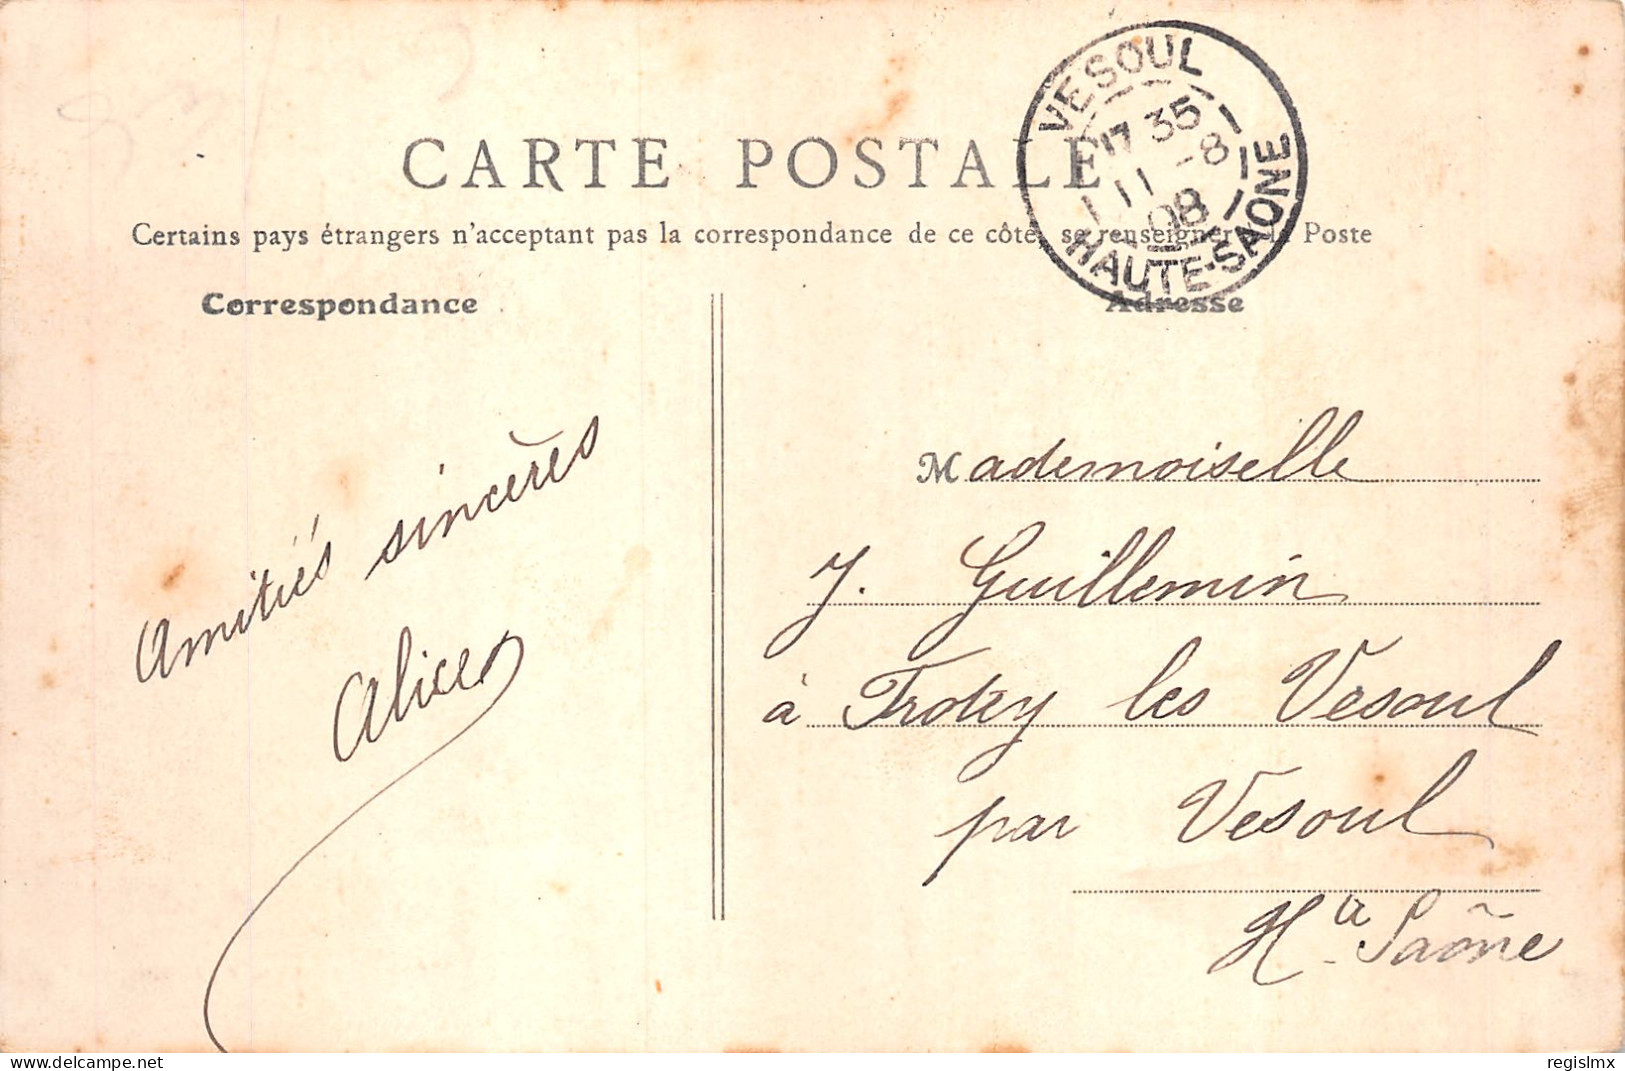 CARTE POSTALE
Certains pays étrangers n'acceptant pas la correspondance de ce côté, se renseigner à la Poste
VESOUL
17 35
11 -8
08
HAUTE-SAONE
Correspondance
Adresse
Amitiés sincères
Alice
Mademoiselle
J. Guillemin
à Frotey les Vesoul
par Vesoul
Hte Saône
delcampe.net
regislmx